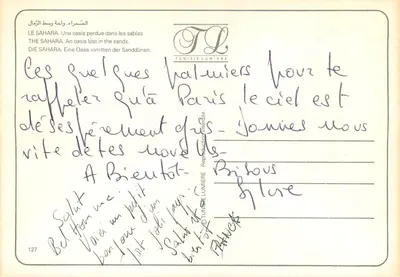 الصحراء. واحة وسط الرمال
LE SAHARA. Une oasis perdue dans les sables
THE SAHARA. An oasis lost in the sands.
DIE SAHARA. Eine Oase inmitten der Sanddünen.
TL
TUNISIE LUMIERE
Ces quelques palmiers pour te
rappeler qu'à Paris le ciel est
désespérement gris - Donnes nous
vite de tes nouvelles -
A Bientôt - Bisous
Sylvie
Salut
Voici un petit
bonjour d'un
joli pays
Salut et à
bientôt
FRANCK
© TUNISIE LUMIERE
127